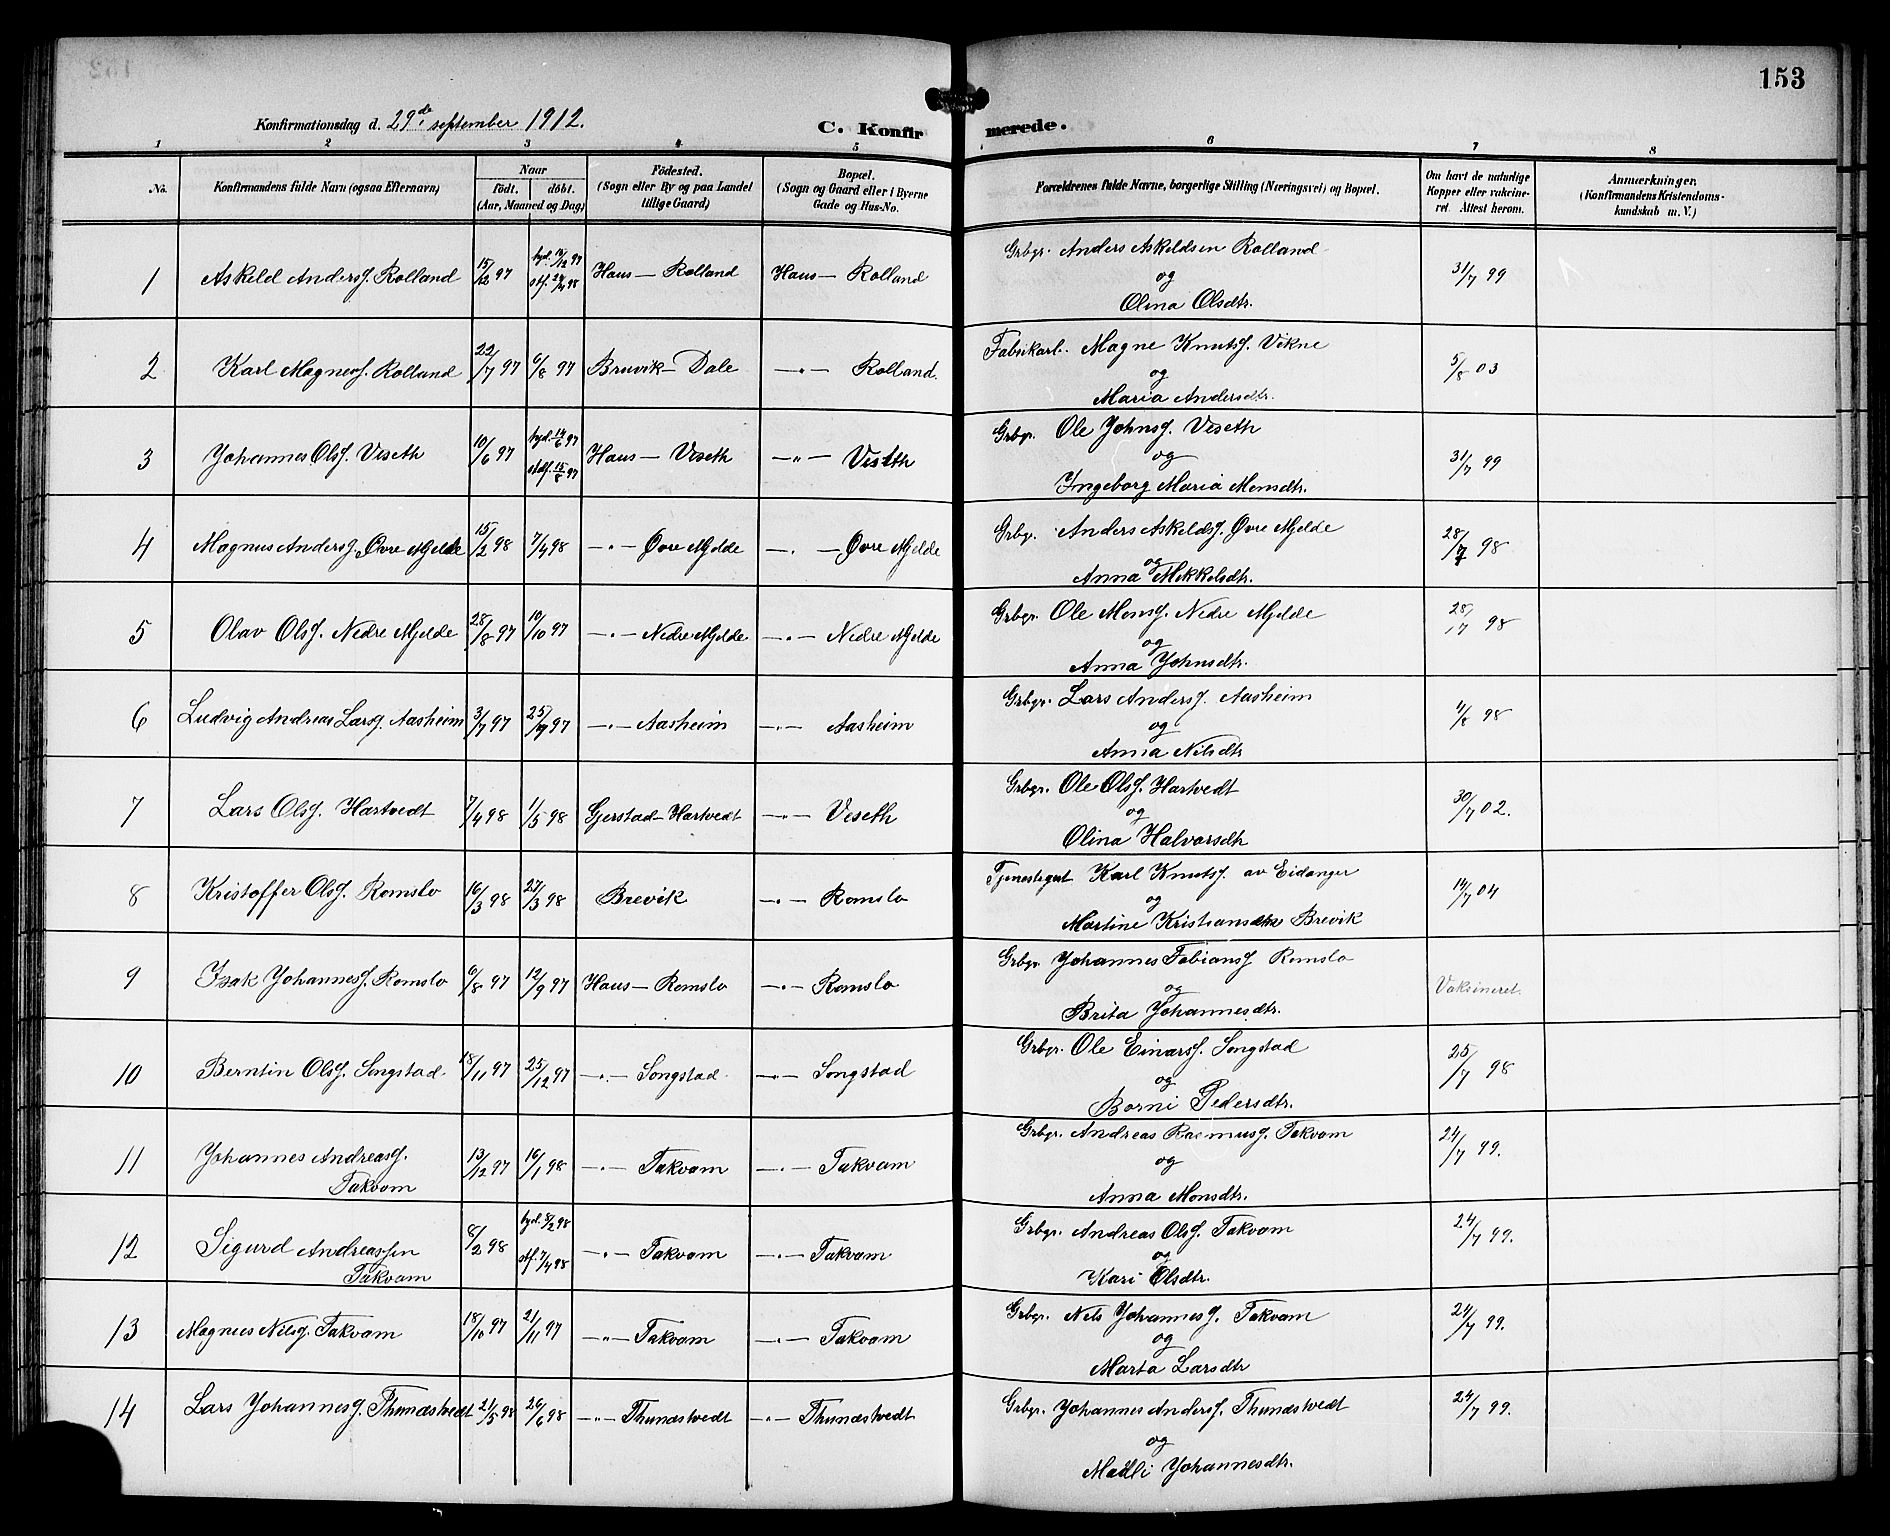 153
Konfirmationsdag d. 29de september 1912.
C. Konfirmerede.
1 2 3 4 5 6 7 8
No.
Konfirmandens fulde Navn (ogsaa Efternavn)
Naar
födt. döbt.
(Aar, Maaned og Dag)
Födested.
(Sogn eller By og paa Landet
tillige Gaard)
Bopæl.
(Sogn og Gaard eller i Byerne
Gade og Hus-No.
Forældrenes fulde Navne, borgerlige Stilling (Næringsvei) og Bopæl.
Om havt de naturlige
Kopper eller vakcine-
ret. Attest herom.
Anmærkninger,
(Konfirmandens Kristendoms-
kundskab m. V.)
1 Askeld Anders. Rolland 15/12 97 hjd. 19/12 97 stf. 24/4 98 Haus — Rolland Haus — Rolland Grbgr. Anders Askeldsen Rolland 31/7 99
og
Olina Olsdtr.
2 Karl Magnus. Rolland 22/7 97 6/8 97 Bruvik — Dale —"— Rolland. Fabrikarb. Magne Knuts. Vikne 5/8 03
og
Maria Andersdtr.
3 Johannes Ols. Veseth 10/6 97 hjd. 14/6 97 stdf. 15/8 97 Haus — Veseth —"— Veseth Grbgr. Ole Johns. Veseth 31/7 99
og
Ingeborg Maria Monsdtr.
4 Magnus Anders. Øvre Mjelde 15/2 98 7/4 98 —"— Øvre Mjelde —"— Øvre Mjelde Grbgr. Anders Askelds. Øvre Mjelde 28/7 98
og
Anna Mikkelsdtr.
5 Olav Ols. Nedre Mjelde 28/8 97 10/10 97 —"— Nedre Mjelde —"— Nedre Mjelde Grbgr. Ole Mons. Nedre Mjelde 28/7 98
og
Anna Johnsdtr.
6 Ludvig Andreas Lars. Aasheim 3/7 97 25/7 97 —"— Aasheim —"— Aasheim Grbgr. Lars Anders. Aasheim 4/8 98
og
Anna Nilsdtr
7 Lars Ols. Hartvedt 7/4 98 1/5 98 Gjerstad — Hartvedt —"— Veseth Grbgr. Ole Ols. Hartvedt 30/7 02.
og
Olina Halvorsdtr
8 Kristoffer Ols. Romslo 16/3 98 27/3 98 Brevik —"— Romslo Tjenestegut Karl Knuts. av Eidanger 14/7 04
og
Martine Kristiansdtr Brevik
9 Isak Johannes. Romslo 6/8 97 12/9 97 Haus — Romslo —"— Romslo Grbgr. Johannes Fabians. Romslo Vaksineret.
og
Brita Johannesdtr.
10 Berntin Ols. Songstad 18/11 97 25/12 97 —"— Songstad —"— Songstad Grbgr. Ole Einars. Songstad 25/7 98
og
Borni Pedersdtr.
11 Johannes Andreas. 13/12 97 16/1 98 —"— Takvam —"— Takvam Grbgr. Andreas Rasmus. Takvam 24/7 99.
Takvam
og
Anna Monsdtr.
12 Sigurd Andreassen 8/2 98 hjd. 8/2 98 stf. 7/4 98 —"— Takvam —"— Takvam Grbgr. Andreas Ols. Takvam 24/7 99.
Takvam
og
Kari Olsdtr.
13 Magnus Nils. Takvam 18/10 97 21/11 97 —"— Takvam —"— Takvam Grbgr. Nils Johannes. Takvam 24/7 99.
og
Marta Larsdtr
14 Lars Johannes. Thunæstvedt 21/5 98 26/6 98 —"— Thunæstvedt —"— Thunæstvedt Grbgr. Johannes Anders. Thunæstvedt 24/7 99.
og
Madli Johannesdtr.